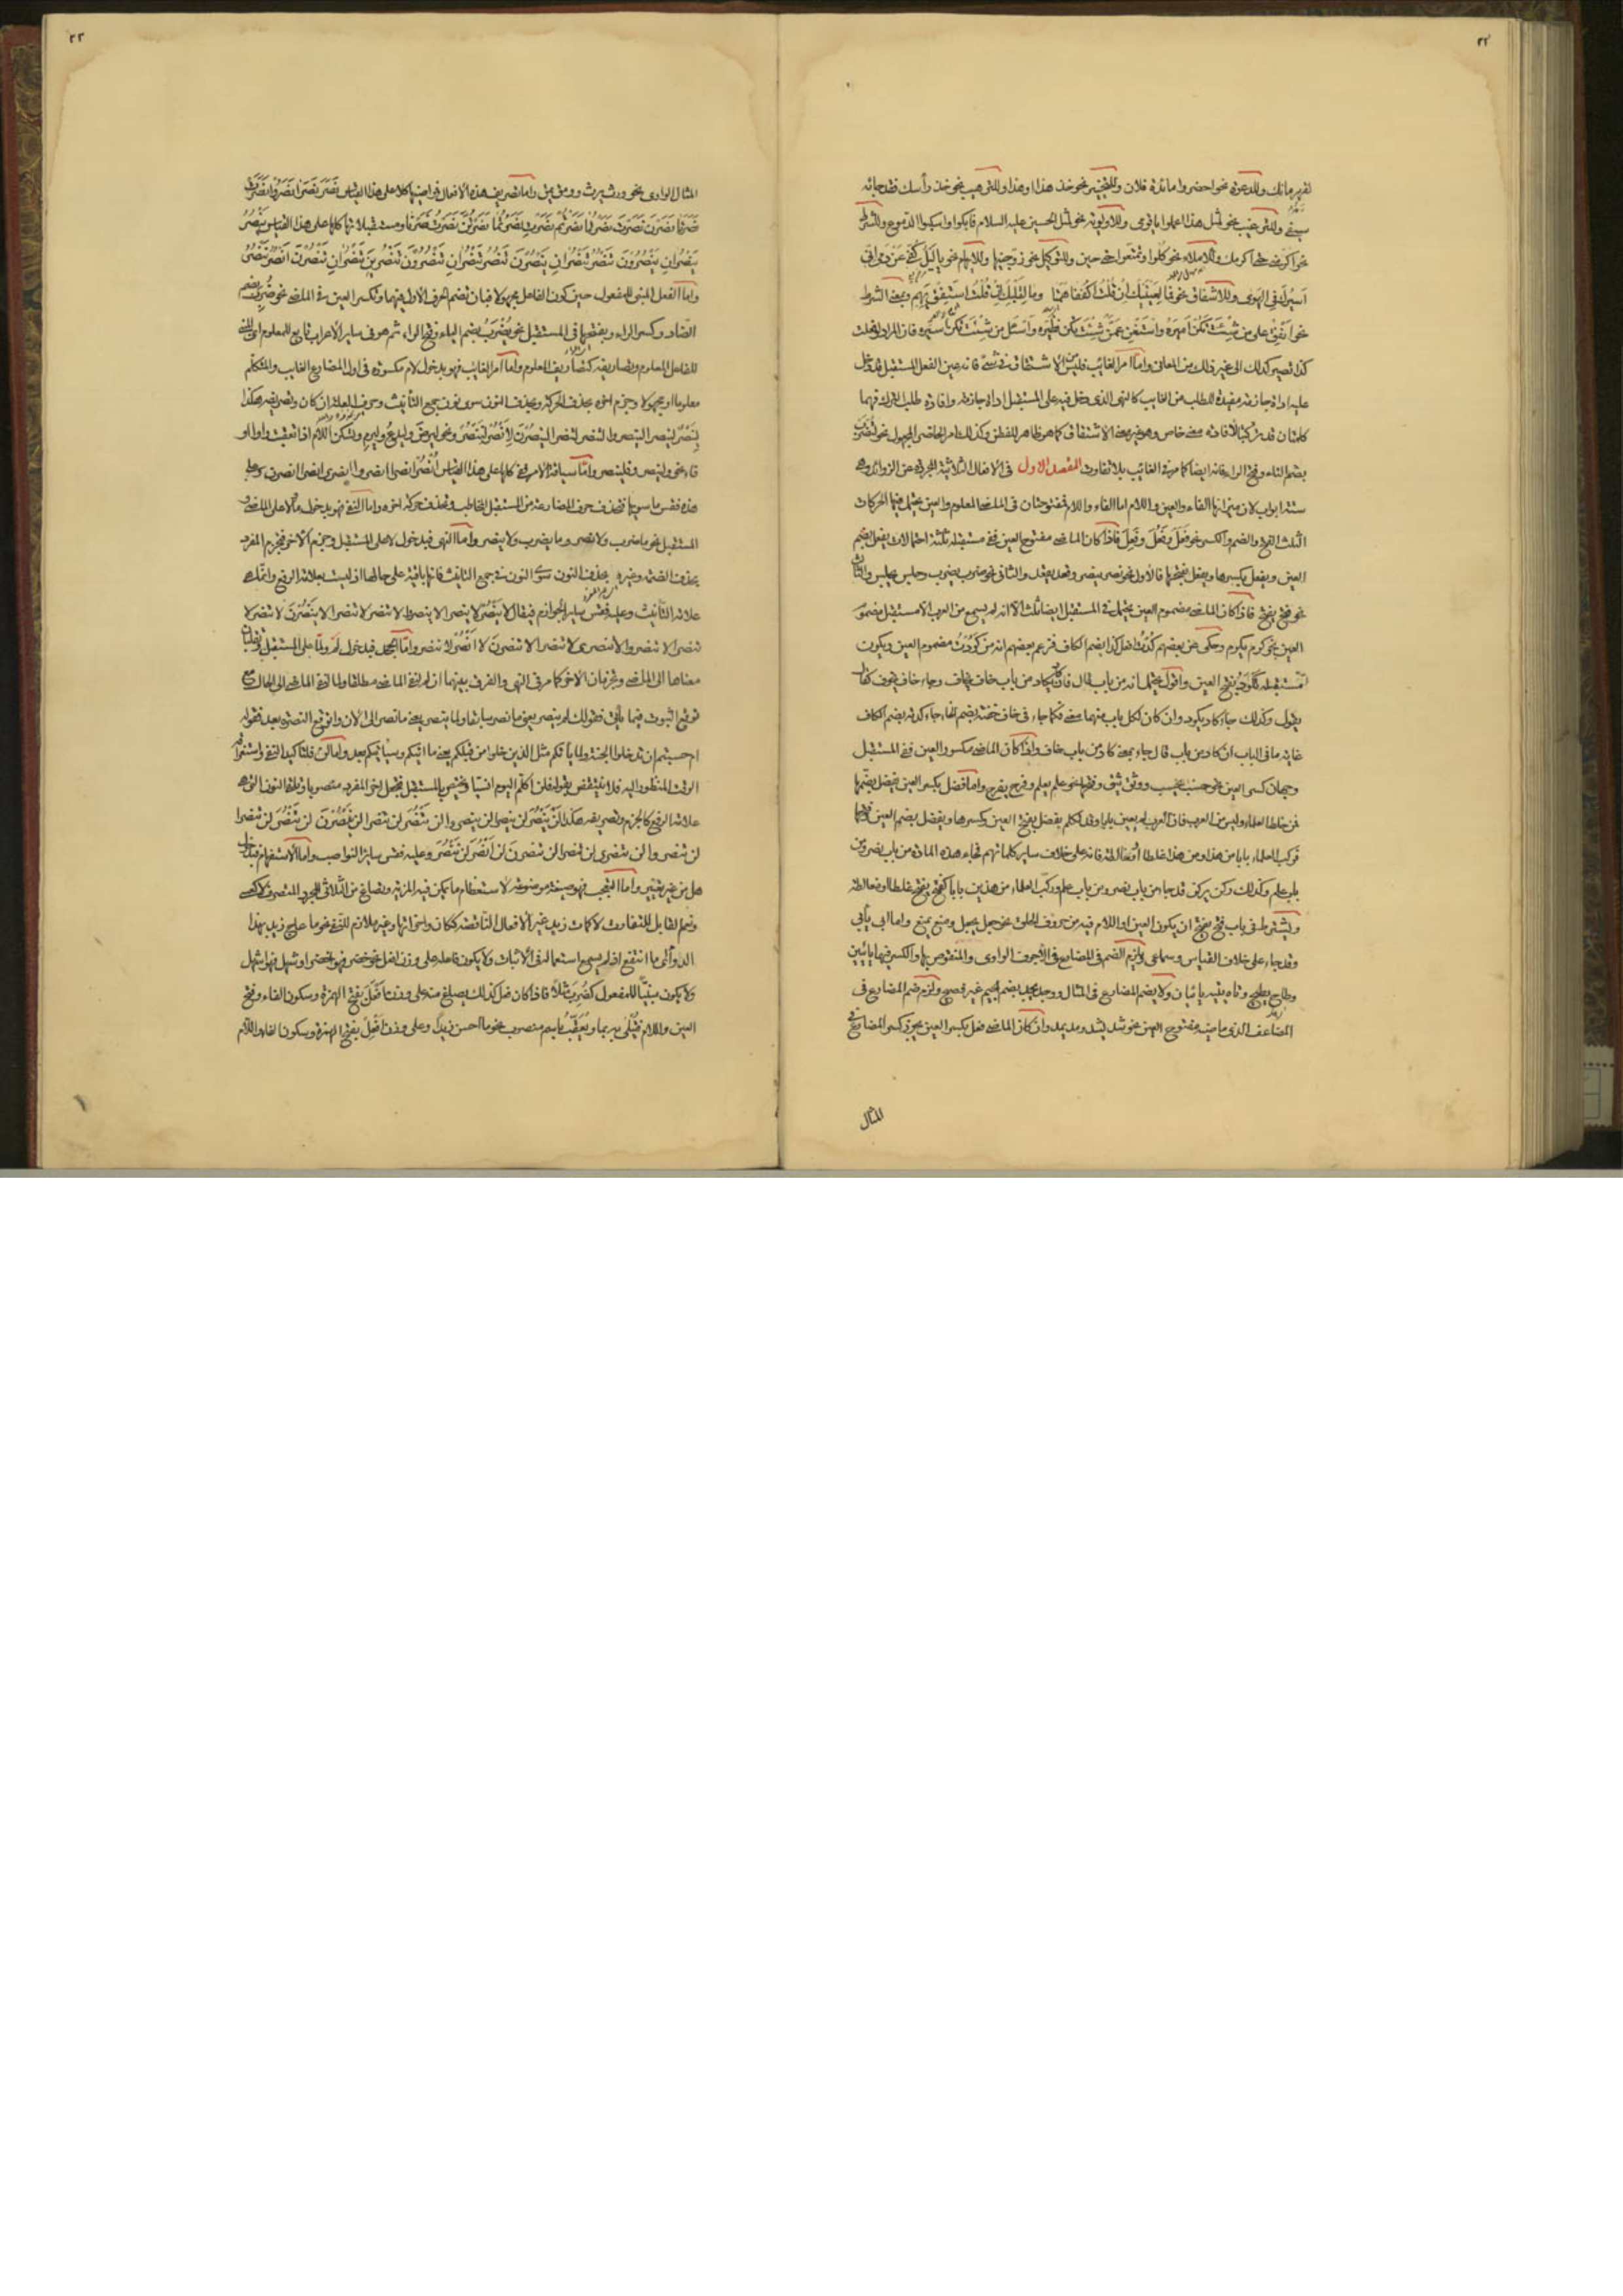 ٢٢
تقرير مانك وللدعوة نحو احضروا مائدة فلان وللتخيير نحو خذ هذا او هذا وللترهيب نحو خذ رأسك فقد جائه
سيفى وللترغيب نحو لمثل هذا اعملوا يا قومى وللاولوية نحو لمثل الحسين عليه السلام فابكوا واسكبوا الدموع وللشرط
نحو اكرمنى حتى اكرمك وللاملاء نحو كلوا وتمتعوا حتى حين وللتوكيل نحو زوجنيها
كذا تصير كذلك الى غير ذلك من المعانى واما امر الغائب فليس الاشتقاق فى شئ فانه عين الفعل المستقبل قد دخل
عليه اداة جازمة مفيدة للطلب من الغايب كالنهى الذى دخل فيه على المستقبل اداة جازمة وافادة طلب الترك فهما
كلمتان قد تركبتا لافادة معنى خاص وهو غير معنى الاشتقاق كما هو ظاهر للفطن وكذلك امر الحاضر المجهول نحو لتضرب
بضم التاء وفتح الراء فانه ايضا كما مر فى الغائب بلا تفاوت المقصد الاول فى الافعال الثلاثية المجردة عن الزوائد وهى
ستة ابواب لان ميزانها الفاء والعين واللام اما الفاء واللام فمفتوحتان فى الماضى المعلوم والعين يحتمل فيها الحركات
الثلث الفتح والضم والكسر نحو فَعَلَ وفَعُلَ وفَعِلَ فاذا كان الماضى مفتوح العين ففى مستقبله ثلثة احتمالات يفعل بضم
العين ويفعل بكسرها ويفعل بفتحها فالاول نحو نصر ينصر وقعد يقعد والثانى نحو ضرب يضرب وجلس يجلس والثالث
نحو فتح يفتح فاذا كان الماضى مضموم العين يحتمل فى المستقبل ايضا ثلث الا انه لم يسمع من العرب الا مستقبل مضموم
العين نحو كرم يكرم وحكى عن بعضهم كُدْتُ افعل كذا بضم الكاف فزعم بعضهم انه من كَوُدْتُ مضموم العين ويكون
مستقبله يكود بفتح العين واقول يحتمل انه من باب قال فان كاد يكاد من باب خاف يخاف وجاء خاف يخوف كقال
يقول وكذلك جاء كاد يكود وان كان لكل باب منهما معنى فكما جاء فى خاف خفته بضم الخاء جاء كدته بضم الكاف
غاية ما فى الباب ان كاد من باب قال جاء بمعنى كاد من باب خاف واذا كان الماضى مكسور العين ففى المستقبل
وجهان كسر العين نحو حسب يحسب ووثق يثق وفتحها نحو علم يعلم وفرح يفرح واما فضل بكسر العين يفضل بضمها
فمن خلط العلماء وليس من العرب فان العرب لم يعين بابا وقد تكلم بفضل بفتح العين وكسرها ويفضل بضم العين وفتحها
فركب العلماء بابا من هذا ومن هذا غلطا او مغالطة فانه على خلاف ساير كلماتهم فجاء هذه المادة من باب نصر ومن
باب علم وكذلك ركن يركن قد جاء من باب نصر ومن باب علم وركب العلماء من هذين بابا كفتح يفتح غلطا او مغالطة
ويشترط فى باب فتح يفتح ان يكون العين او اللام فيه من حروف الحلق نحو جعل يجعل ومنع يمنع واما ابى يأبى
وقد جاء على خلاف القياس وسماعى ولزم الضم فى المضارع فى الاجوف الواوى والمنقوص بها والكسر فيهما يائيين
وطاح يطيح وتاه يتيه يائيان ولا يضم المضارع فى المثال ووجد يجد بضم الجيم غير فصيح ولزم ضم المضارع فى
المضاعف الذى ماضيه مفتوح العين نحو شد يشد ومد يمد وان كان الماضى فعل بكسر العين يجوز كسر المضارع فى
المثال
٢٣
المثال الواوى نحو ورث يرث وومق يمق واما تصريف هذه الافعال فماضيها كلا على هذا القياس نَصَرَ نَصَرَا نَصَرُوا نَصَرَتْ
نَصَرَتَا نَصَرْنَ نَصَرْتَ نَصَرْتُمَا نَصَرْتُمْ نَصَرْتِ نَصَرْتُمَا نَصَرْتُنَّ نَصَرْتُ نَصَرْنَا ومستقبلاتها كلها على هذا القياس يَنْصُرُ
يَنْصُرَانِ يَنْصُرُونَ تَنْصُرُ تَنْصُرَانِ يَنْصُرْنَ تَنْصُرُ تَنْصُرَانِ تَنْصُرُونَ تَنْصُرِينَ تَنْصُرَانِ تَنْصُرْنَ اَنْصُرُ نَنْصُرُ
واما الفعل المبنى للمفعول حين كون الفاعل مجهولا فبان تضم الحرف الاول فيهما وتكسر العين فى الماضى نحو ضُرِبَ بضم
الضاد وكسر الراء وبفتحها فى المستقبل نحو يُضْرَبُ بضم الياء وفتح الراء ثم هو فى ساير الاعراب تابع للمعلوم اى المبنى
للفاعل المعلوم وتصاريفه كتصاريف المعلوم واما امر الغايب فهو بدخول لام مكسورة فى اول المضارع الغايب والمتكلم
معلوما او مجهولا وجزم اخره بحذف الحركة وبحذف النون سوى نون جمع التأنيث وحروف العلة ان كان وتصريفه هكذا
لِيَنْصُرْ لينصرا لينصروا لتنصر لتنصرا لينصُرْنَ لِاَنْصُرْ لِنَنْصُرْ ونحو ليرضَ وليدعُ وليرمِ وتسكن اللام اذا تعقبت واوا او
فاء نحو ولينصر وفلينصر واما سيلقة الامر فهى كلها على هذا القياس اُنْصُرْ انصرا انصروا انصرى انصرا انصرن وعلى
هذه فقس ما سويها فتحذف حرف المضارعة من المستقبل المخاطب وتحذف حركة اخره واما النفى فهو بدخول ما ولا على الماضى و
المستقبل نحو ما ضرب ولا نصر وما يضرب ولا ينصر واما النهى فبدخول لا على المستقبل وجزم الاخر فجزم المفرد
بحذف الضمة وغيره بحذف النون سوى النون فى جمع التأنيث فانها باقية على حالها اذ ليست بعلامة الرفع وانما هى
علامة التأنيث وعليه فقس ساير الجوازم فيقال لا يَنْصُرْ لا ينصرا لا ينصروا لا تنصر لا تنصرا لا يَنْصُرْنَ لا تنصر لا
تنصرا لا تنصروا لا تنصرى لا تنصرا لا تنصرن لا اَنْصُرْ لا ننصر واما الجحد فبدخول لَمْ ولمّا على المستقبل فتقلبان
معناها الى الماضى وتجزمان الاخر كما مر فى النهى والفرق بينهما ان لم لنفى الماضى مطلقا ولما لنفى الماضى الى الحال مع
توقع الثبوت فيما يأتى فتقول لم ينصر يعنى ما نصر سابقا ولما ينصر يعنى ما نصر الى الان واتوقع النصرة بعد فقوله
ام حسبتم ان تدخلوا الجنة ولما يأتكم مثل الذين خلوا من قبلكم يعنى ما اتيكم وسيأتيكم بعد واما لن فلتأكيد النفى واستغراق
الوقت المنظور اليه فلا ينتقض بقوله فلن اكلم اليوم انسيا ويختص بالمستقبل فتجعل اخر المفرد منصوبا وتلقى النون التى هى
علامة الرفع كالجزم وتصريفه هكذا لَنْ يَنْصُرَ لن ينصرا لن ينصروا لن تَنْصُرَ لن تنصرا لن يَنْصُرْنَ لن تَنْصُرَ لن تنصرا
لن تنصروا لن تنصرى لن تنصرا لن تنصرن لن اَنْصُرَ لن نَنْصُرَ وعليه فقس ساير النواصب واما الاستفهام فبدخول
هل من غير تغيير واما التعجب فهو صيغة موضوعة لاستعظام ما يمكن فيه المزية وتصاغ من الثلاثى المجرد المتصرف لا كعسى
ونعم القابل للتفاوت لا كمات زيد غير الافعال الناقصة ككان واخواتها وغير ملازم للنفى نحو ما عاج زيد بهذا
الدواء اى ما انتفع اذ لم يسمع استعماله فى الاثبات ولا يكون فاعله على وزن افعل نحو خضر فهو اخضر او شهل فهو اشهل
ولا يكون مبنيا للمفعول كضُرِبَ مثلا فاذا كان فعل كذلك يصاغ منه على وزن ما اَفْعَلَ بفتح الهمزة وسكون الفاء وفتح
العين واللام فيُبْدَى بما ويُعَقَّبُ باسم منصوب نحو ما احسن زيدا وعلى وزن اَفْعِلْ بفتح الهمزة وسكون الفاء واللام